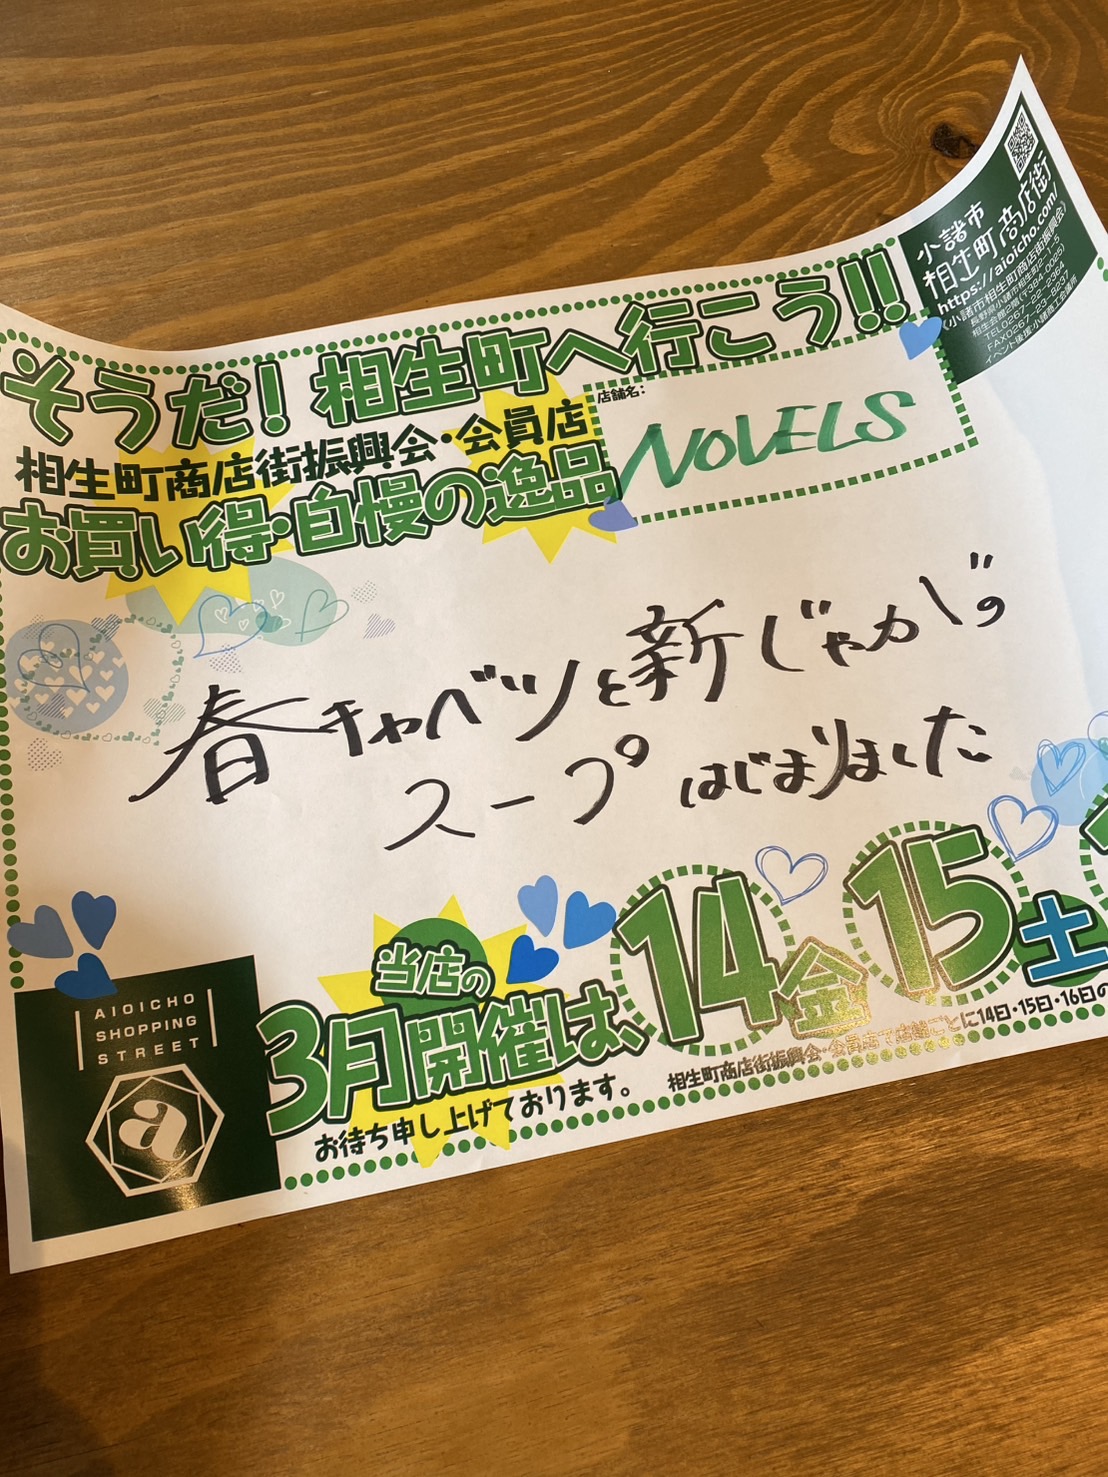 小諸市
相生町商店街
https://aioicho.com/
(小諸市相生町商店街振興会)
長野県小諸市相生町2-1-5
相生会館2階(〒384-0025)
イベント後援:小諸商工会議所
そうだ!相生町へ行こう!!
相生町商店街振興会・会員店
お買い得・自慢の逸品
店舗名:
NOVELS
春キャベツと新じゃがの
スープ はじまりました
当店の
3月開催は、14金 15土
お待ち申し上げております。
相生町商店街振興会・会員店で店舗ごとに14日・15日・16日の
AIOICHO
SHOPPING
STREET
a